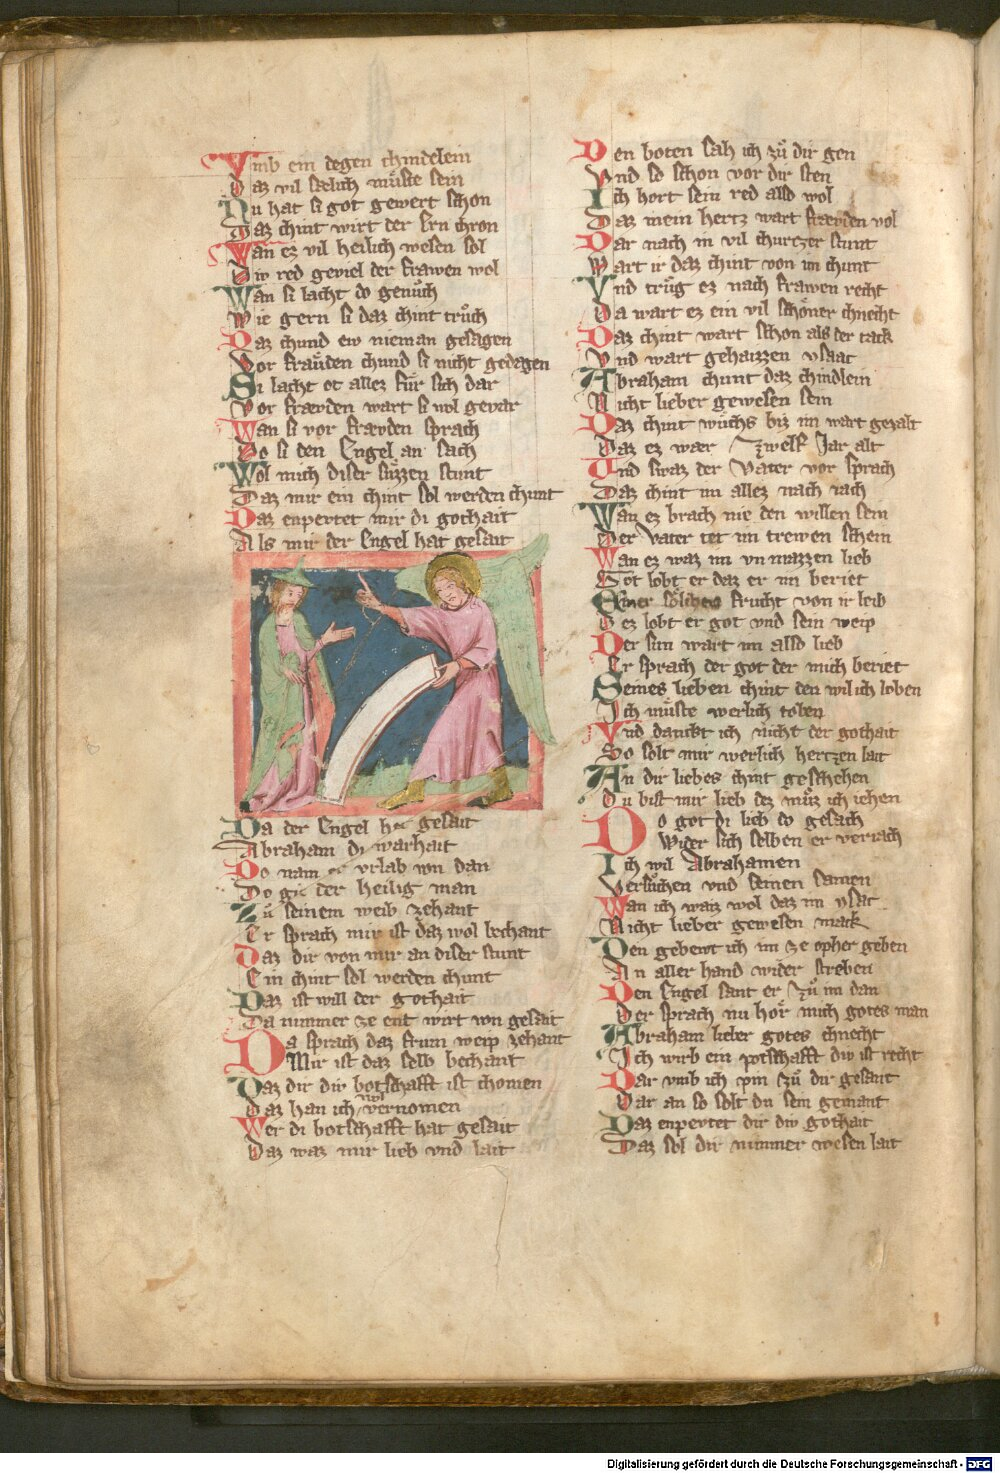 Vmb ein degen chindelein
Daz vil sælich muͤste sein
Nu hat si got gewert schon
Daz chint wirt der ern chron
Wan ez vil heilich wesen sol
Div red geviel der frawen wol
Wan si lacht do genuͦch
Wie gern si daz chint truͦch
Daz chund ew nieman gesagen
Vor fraͤuden chund si nicht gedagen
Si lacht et allez fuͤr sich dar
Vor fræuden wart si wol gevar
Wan si vor fræuden sprach
Do si den Engel an sach
Wol mich diser suͤzzen stunt
Daz mir ein chint sol werden chunt
Daz enpeutet mir di gothait
Als mir der Engel hat gesait
Da der Engel het gesait
Abraham di warhait
Do nam er vrlab von dan
Do gie der heilig man
Zuͦ seinem weib zehant
Er sprach mir ist daz wol bechant
Daz dir von mir an diser stunt
Ein chint sol werden chunt
Daz ist will der gothait
Da nimmer ze ent wirt von gesait
Da sprach daz frum weip zehant
Mir ist daz selb bechant
Daz dir div botschafft ist chomen
Daz han ich wol vernomen
Wer di botschafft hat gesait
Daz waz mir lieb vnd lait
Den boten sah ich zuͦ dir gen
Vnd so schon vor dir sten
Ich hort sein red also wol
Daz mein hertz wart fræuden vol
Dar nach in vil churczer stunt
Wart ir daz chint von im chunt
Vnd truͦg ez nach frawen recht
Da wart ez ein vil schoͤner chnecht
Daz chint wart schon als der tack
Vnd wart gehaizzen ysaac
Abraham chunt daz chindlein
Nicht lieber gewesen sein
Daz chint wuͦchs biz im wart gezalt
Daz ez wær zwelf Jar alt
Vnd swaz der Vater vor sprach
Daz chint im allez nach iach
Wan ez brach nie den willen sein
Der Vater tet im trewen schein
Wan ez waz im vnmazzen lieb
Got lobt er daz er im beriet
Einer soͤlichen frucht von ir leib
Dez lobt er got vnd sein weip
Der sun wart im also lieb
Er sprach der got der mich beriet
Seines lieben chint den wil ich loben
Ich muͤste werlich toben
Vnd danckt ich nicht der gothait
So solt mir werlich hertzen lait
An dir liebes chint geschehen
Du bist mir lieb dez muͦz ich iehen
Do got di lieb do gesach
Wider sich selben er veriach
Ich wil Abrahamen
Versuͦchen vnd seinen samen
Wan ich waiz wol daz im ysac
Nicht lieber gewesen mack
Den gebewt ich im ze opher geben
An aller hand wider streben
Den Engel sant er Zuͦ im dan
Der sprach nu hoͤr mich gotes man
Abraham lieber gotes chnecht
Ich wirb ein potschafft div ist recht
Dar vmb ich pin zuͦ dir gesant
Dar an so solt du sein gemant
Daz enpeutet dir div gothait
Daz sol dir nimmer wesen lait
Digitalisierung gefördert durch die Deutsche Forschungsgemeinschaft - DFG